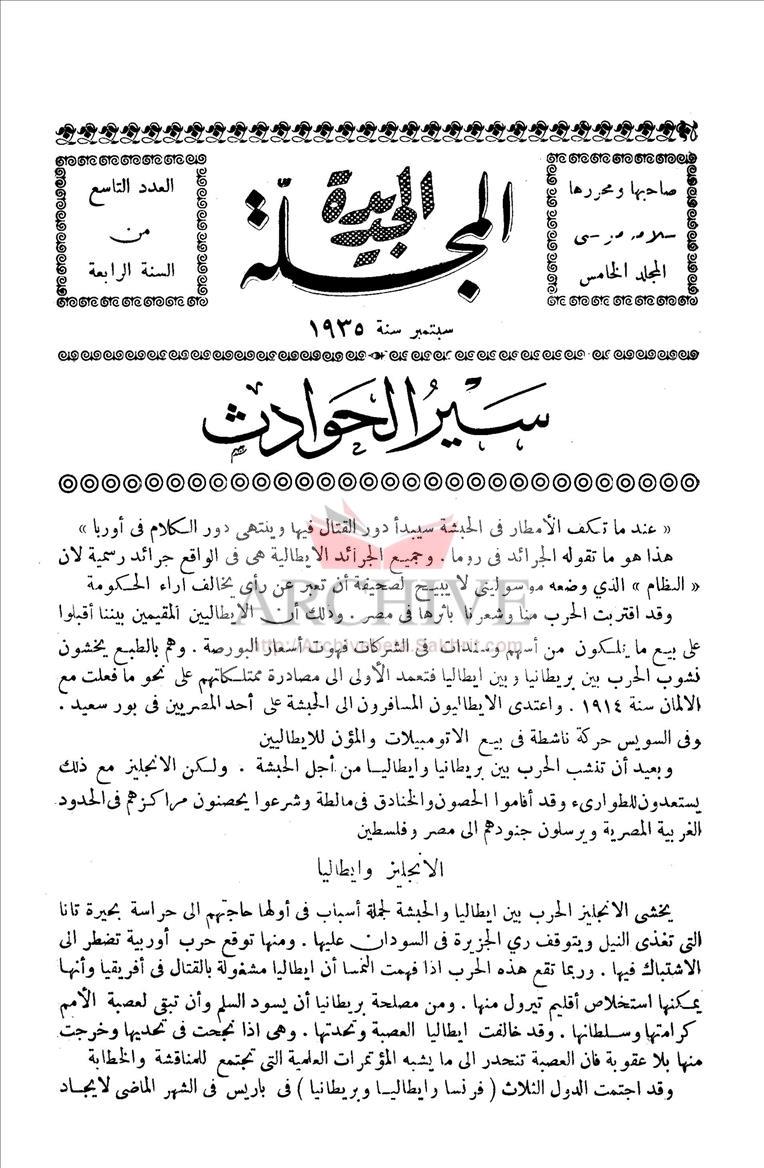 صاحبها ومحررها
سلامه موسى
المجلد الخامس
المجلة
الجديدة
العدد التاسع
من
السنة الرابعة
سبتمبر سنة ١٩٣٥
سَيْرُ الحَوادث
« عند ما تكف الأمطار فى الحبشة سيبدأ دور القتال فيها وينتهى دور الكلام فى أوربا »
هذا هو ما تقوله الجرائد فى روما . وجميع الجرائد الايطالية هى فى الواقع جرائد رسمية لان
« النظام » الذي وضعه موسولينى لا يبيح لصحيفة أن تعبر عن رأى يخالف اراء الحكومة
وقد اقتربت الحرب منا وشعرنا بأثرها فى مصر . وذلك أن الايطاليين المقيمين بيننا أقبلوا
على بيع ما يملكون من أسهم وسندات فى الشركات فهوت أسعار البورصة . وهم بالطبع يخشون
نشوب الحرب بين بريطانيا وبين ايطاليا فتعمد الأولى الى مصادرة ممتلكاتهم على نحو ما فعلت مع
الالمان سنة ١٩١٤ . واعتدى الايطاليون المسافرون الى الحبشة على أحد المصريين فى بور سعيد .
وفى السويس حركة ناشطة فى بيع الاتومبيلات والمؤن للايطاليين
وبعيد أن تنشب الحرب بين بريطانيا وايطاليا من أجل الحبشة . ولكن الانجليز مع ذلك
يستعدون للطوارىء وقد أقاموا الحصون والخنادق فى مالطة وشرعوا يحصنون مراكزهم فى الحدود
الغربية المصرية ويرسلون جنودهم الى مصر وفلسطين
الانجليز وايطاليا
يخشى الانجليز الحرب بين ايطاليا والحبشة لجملة أسباب فى أولها حاجتهم الى حراسة بحيرة تانا
التى تغذى النيل ويتوقف ري الجزيرة فى السودان عليها . ومنها توقع حرب أوربية تضطر الى
الاشتباك فيها . وربما تقع هذه الحرب اذا فهمت النمسا أن ايطاليا مشغولة بالقتال فى أفريقيا وأنها
يمكنها استخلاص أقليم تيرول منها . ومن مصلحة بريطانيا أن يسود السلم وأن تبقى لعصبة الأمم
كرامتها وسلطانها . وقد خالفت ايطاليا العصبة وتحدتها . وهى اذا نجحت فى تحديها وخرجت
منها بلا عقوبة فان العصبة تنحدر الى ما يشبه المؤتمرات العلمية التى تجتمع للمناقشة والخطابة
وقد اجتمت الدول الثلاث ( فرنسا وايطاليا وبريطانيا ) فى باريس فى الشهر الماضى لايجاد
ARCHIVE
http://Archivebeta.Sakhrit.com